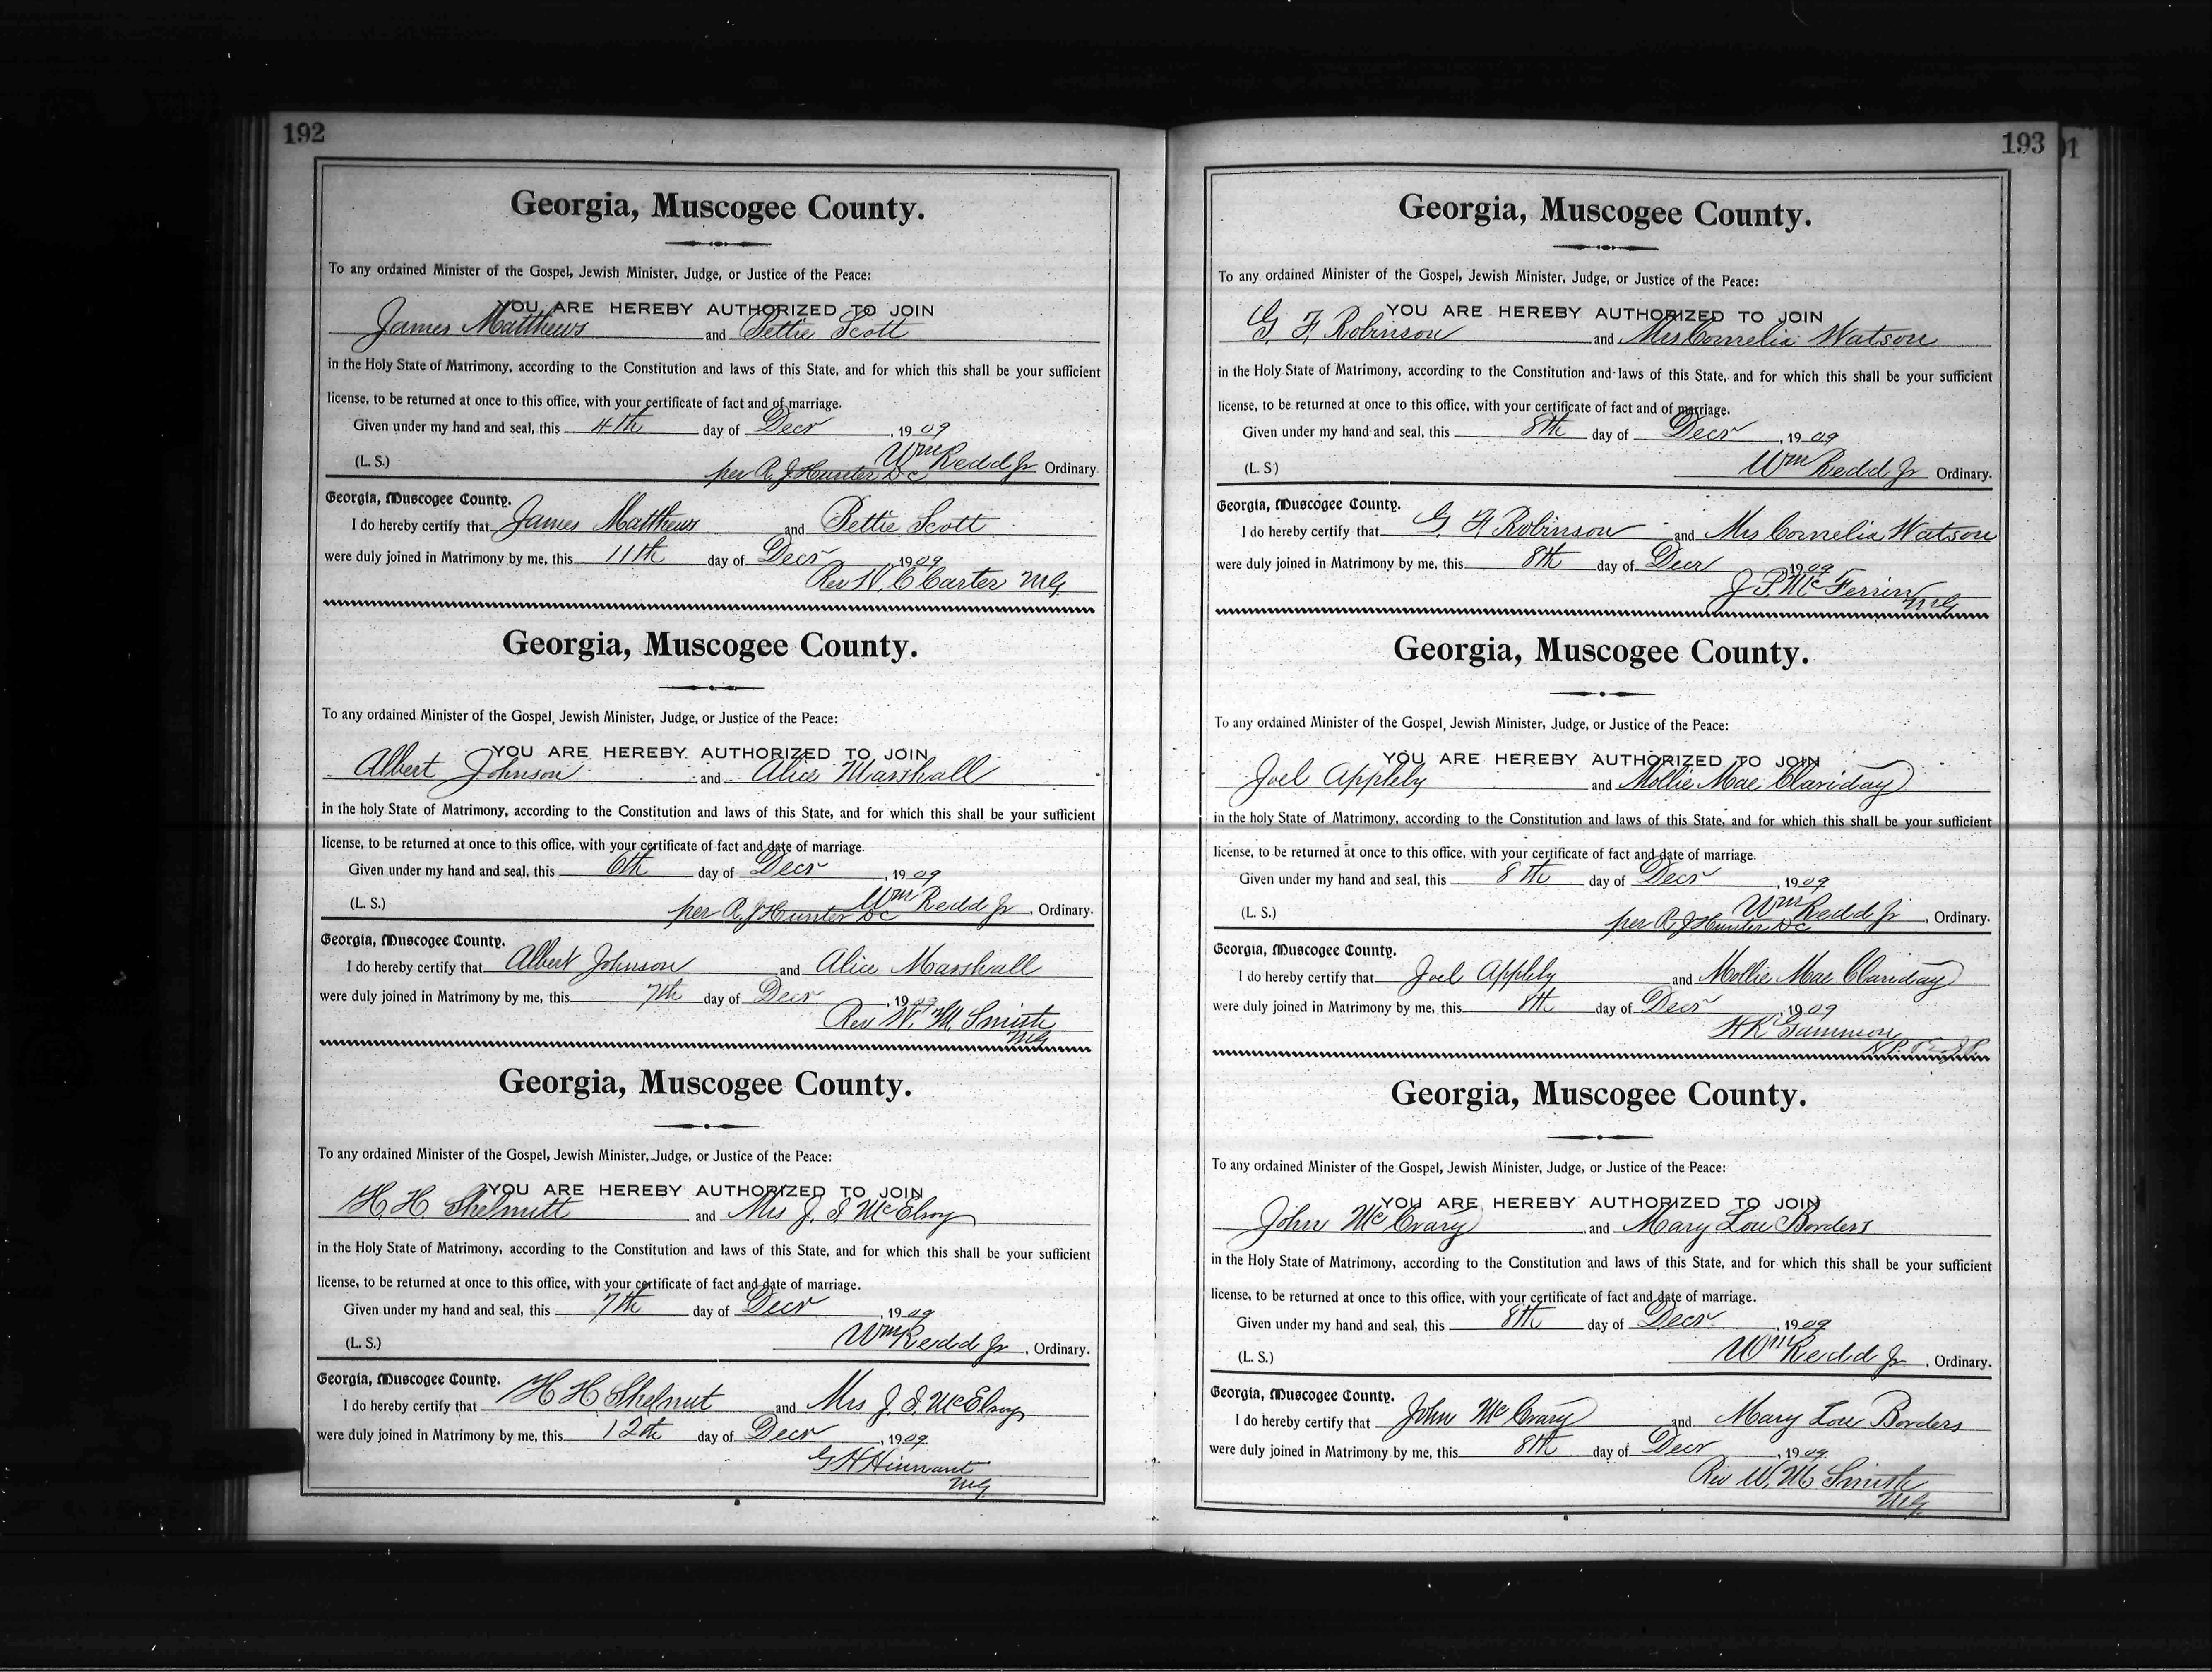 192
Georgia, Muscogee County.
To any ordained Minister of the Gospel, Jewish Minister, Judge, or Justice of the Peace:
YOU ARE HEREBY AUTHORIZED TO JOIN
James Matthews and Bettie Scott
in the Holy State of Matrimony, according to the Constitution and laws of this State, and for which this shall be your sufficient
license, to be returned at once to this office, with your certificate of fact and of marriage.
Given under my hand and seal, this 4th day of Decr, 1909
(L. S.) Wm Redd Jr Ordinary.
per R. J Hunter DC
Georgia, Muscogee County.
I do hereby certify that James Matthews and Bettie Scott
were duly joined in Matrimony by me, this 11th day of Decr, 1909
Rev W. C Carter MG
Georgia, Muscogee County.
To any ordained Minister of the Gospel, Jewish Minister, Judge, or Justice of the Peace:
YOU ARE HEREBY AUTHORIZED TO JOIN
Albert Johnson and Alice Marshall
in the holy State of Matrimony, according to the Constitution and laws of this State, and for which this shall be your sufficient
license, to be returned at once to this office, with your certificate of fact and date of marriage.
Given under my hand and seal, this 6th day of Decr, 1909
(L. S.) Wm Redd Jr, Ordinary.
per R. J Hunter DC
Georgia, Muscogee County.
I do hereby certify that Albert Johnson and Alice Marshall
were duly joined in Matrimony by me, this 7th day of Decr, 1909
Rev W. M. Smith
MG
Georgia, Muscogee County.
To any ordained Minister of the Gospel, Jewish Minister, Judge, or Justice of the Peace:
YOU ARE HEREBY AUTHORIZED TO JOIN
H. H. Shelnutt and Mrs J. I. McElroy
in the Holy State of Matrimony, according to the Constitution and laws of this State, and for which this shall be your sufficient
license, to be returned at once to this office, with your certificate of fact and date of marriage.
Given under my hand and seal, this 7th day of Decr, 1909
(L. S.) Wm Redd Jr, Ordinary.
Georgia, Muscogee County.
I do hereby certify that H H Shelnut and Mrs J. I. McElroy
were duly joined in Matrimony by me, this 12th day of Decr, 1909
G H Hinnant
MG.
193
Georgia, Muscogee County.
To any ordained Minister of the Gospel, Jewish Minister, Judge, or Justice of the Peace:
YOU ARE HEREBY AUTHORIZED TO JOIN
G. F. Robinson and Mrs Cornelia Watson
in the Holy State of Matrimony, according to the Constitution and laws of this State, and for which this shall be your sufficient
license, to be returned at once to this office, with your certificate of fact and of marriage.
Given under my hand and seal, this 8th day of Decr, 1909
(L. S) Wm Redd Jr Ordinary.
Georgia, Muscogee County.
I do hereby certify that G. F Robinson and Mrs Cornelia Watson
were duly joined in Matrimony by me, this 8th day of Decr, 1909
J P. McFerrin
MG
Georgia, Muscogee County.
To any ordained Minister of the Gospel, Jewish Minister, Judge, or Justice of the Peace:
YOU ARE HEREBY AUTHORIZED TO JOIN
Joel Appleby and Mollie Mae Clariday
in the holy State of Matrimony, according to the Constitution and laws of this State, and for which this shall be your sufficient
license, to be returned at once to this office, with your certificate of fact and date of marriage.
Given under my hand and seal, this 8th day of Decr, 1909
(L. S.) Wm Redd Jr, Ordinary.
per R J Hunter DC
Georgia, Muscogee County.
I do hereby certify that Joel Appleby and Mollie Mae Clariday
were duly joined in Matrimony by me, this 8th day of Decr, 1909
H K Gammon
Georgia, Muscogee County.
To any ordained Minister of the Gospel, Jewish Minister, Judge, or Justice of the Peace:
YOU ARE HEREBY AUTHORIZED TO JOIN
John McCrary and Mary Lou Borders
in the Holy State of Matrimony, according to the Constitution and laws of this State, and for which this shall be your sufficient
license, to be returned at once to this office, with your certificate of fact and date of marriage.
Given under my hand and seal, this 8th day of Decr, 1909
(L. S.) Wm Redd Jr, Ordinary.
Georgia, Muscogee County.
I do hereby certify that John McCrary and Mary Lou Borders
were duly joined in Matrimony by me, this 8th day of Decr, 1909.
Rev W. M Smith
MG.